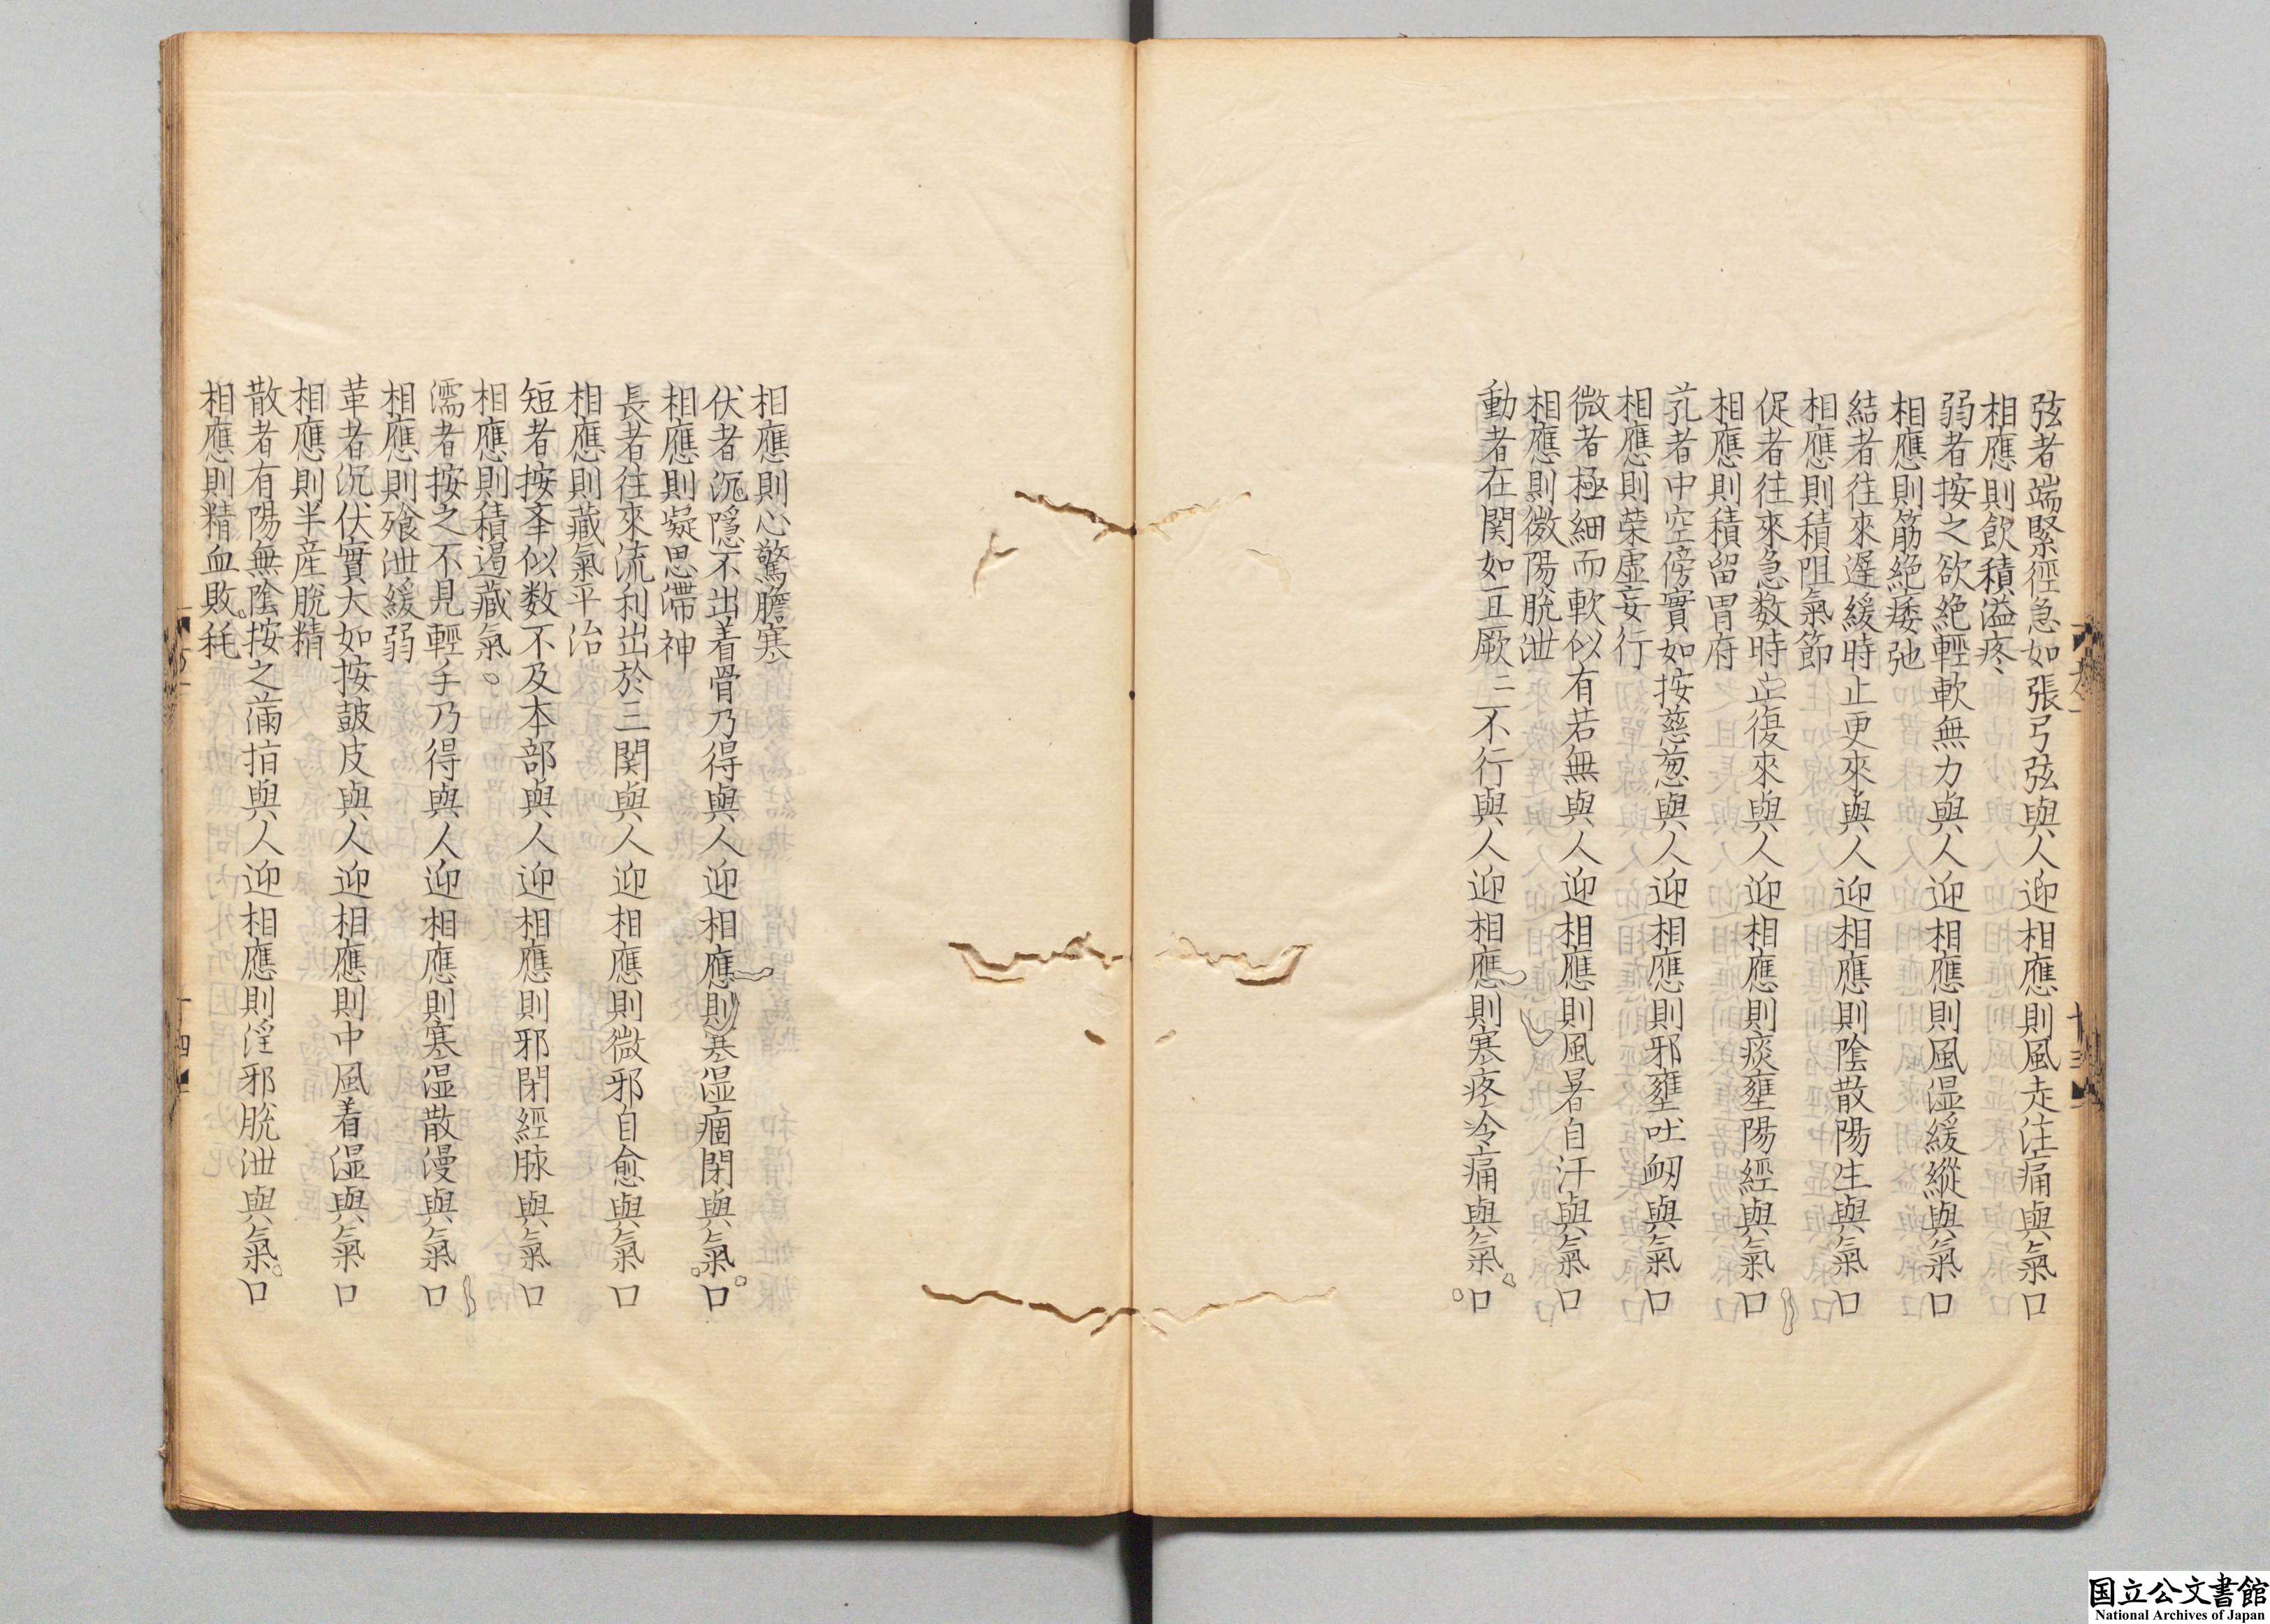 弦者端緊徑急如張弓弦與人迎相應則風走注痛與氣口
相應則飲積溢疼
弱者按之欲絶輕軟無力與人迎相應則風湿緩縱與氣口
相應則筋絶痿弛
結者往來遲緩時止更來與人迎相應則陰散陽生與氣口
相應則積阻氣節
促者往來急数時止復來與人迎相應則痰壅陽經與氣口
相應則積留胃府
芤者中空傍實如按慈葱與人迎相應則邪壅吐衂與氣口
相應則荣虚妄行
微者極細而軟似有若無與人迎相應則風暑自汗與氣口
相應則微陽脱泄
動者在関如豆厥厥不行與人迎相應則寒疼冷痛與氣口
相應則心驚膽寒
伏者沉隱不出着骨乃得與人迎相應則寒湿痼閉與氣口
相應則凝思滯神
長者往來流利出於三関與人迎相應則微邪自愈與氣口
相應則藏氣平治
短者按舉似数不及本部與人迎相應則邪閉經脉與氣口
相應則積遏藏氣
濡者按之不見輕手乃得與人迎相應則寒湿散漫與氣口
相應則飱泄緩弱
革者沉伏實大如按皷皮與人迎相應則中風着湿與氣口
相應則半産脱精
散者有陽無陰按之滿指與人迎相應則淫邪脱泄與氣口
相應則精血敗耗
十三
十四
国立公文書館
National Archives of Japan